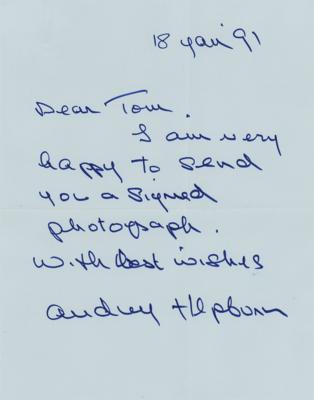 18 jan '91
Dear Tom.
I am very
happy to send
you a signed
photograph.
With best wishes
Audrey Hepburn